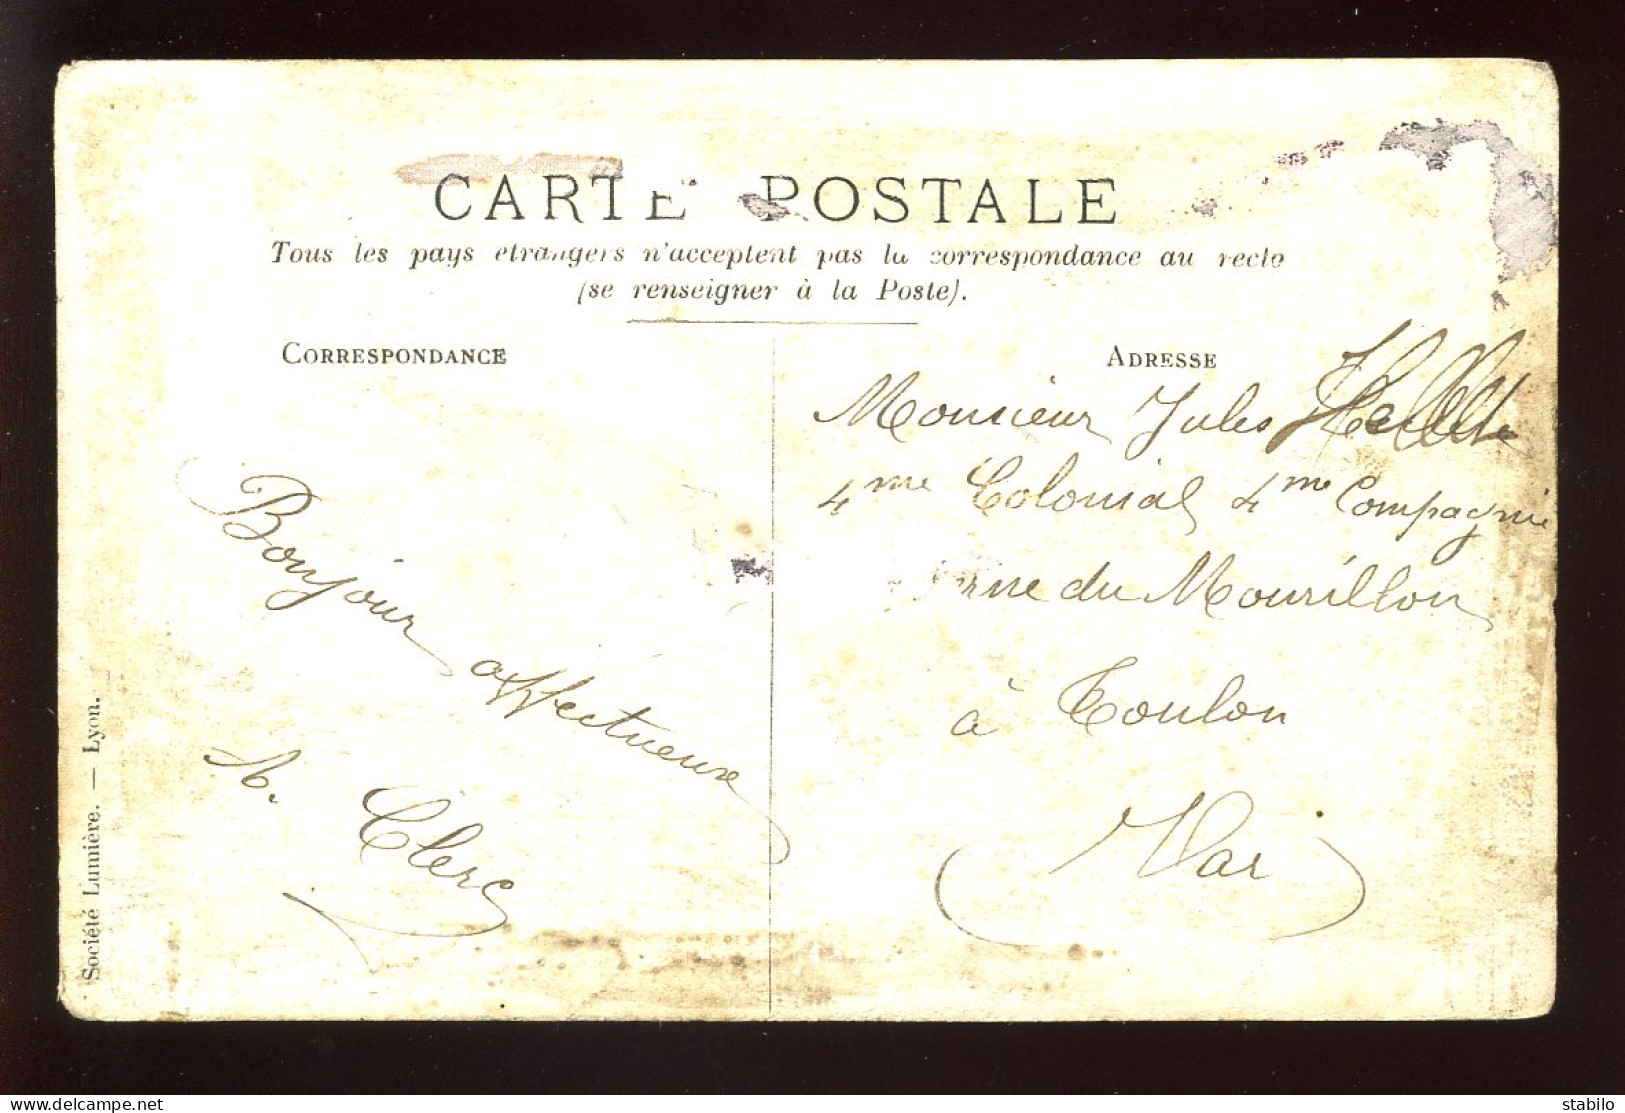 CARTE POSTALE
Tous les pays etrangers n'acceptent pas la correspondance au recto
(se renseigner à la Poste).
CORRESPONDANCE
Bonjour affectueux
A. Clerc
ADRESSE
Monsieur Jules
4me Colonial 4me Compagnie
du Mourillon
à Toulon
(Var)
Société Lumière. — Lyon.
delcampe.net
stabilo